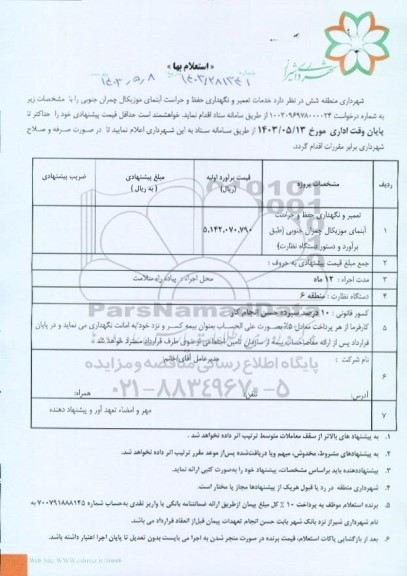 « استعلام بها »
شهرداری شیراز
شماره ۱۴۰۳/۲۸۱۳۴۱
۱۴۰۳,۵,۸
شهرداری منطقه شش در نظر دارد خدمات تعمیر و نگهداری حفظ و حراست آبنمای موزیکال چمران جنوبی را با مشخصات زیر
به شماره درخواست ۱۱۰۲۰۹۶۹۷۸۰۰۰۰۲۴ از طریق سامانه ستاد اقدام نماید. خواهشمند است حداقل قیمت پیشنهادی خود را حداکثر تا
پایان وقت اداری مورخ ۱۴۰۳/۰۵/۱۳ از طریق سامانه ستاد به این شهرداری اعلام نمایید تا در صورت صرفه و صلاح
شهرداری برابر مقررات اقدام گردد.
ردیف مشخصات پروژه قیمت برآورد اولیه (ریال) مبلغ پیشنهادی (به ریال) ضریب پیشنهادی
۱ تعمیر و نگهداری حفظ و حراست
آبنمای موزیکال چمران جنوبی (طبق
برآورد و دستور دستگاه نظارت)
۵,۱۴۲,۰۷۰,۷۹۰
۲ جمع مبلغ قیمت پیشنهادی به حروف :
۳ مدت اجراء : ۱۲ ماه محل اجراء : پیاده راه سلامت
۴ دستگاه نظارت : منطقه ۶
۵ کسور قانونی : ۱۰ درصد سپرده حسن انجام کار
کارفرما از هر پرداخت معادل ۵٪ بصورت علی الحساب بعنوان بیمه کسر و نزد خود به امانت نگهداری می نماید و در پایان
قرارداد پس از ارائه مفاصاحساب بیمه از سازمان تامین اجتماعی از سوی طرف قرارداد مسترد خواهد شد .
۶ نام شرکت : مدیرعامل آقای/خانم:
آدرس: تلفن: همراه:
۷ مهر و امضاء تعهد آور و پیشنهاد دهنده
ParsNamadData
پایگاه اطلاع رسانی مناقصه و مزایده
۰۲۱-۸۸۳۴۹۶۷۰-۵
۱. به پیشنهاد های بالاتر از سقف معاملات متوسط ترتیب اثر داده نخواهد شد .
۲. به پیشنهادهای مشروط، مخدوش، مبهم ویا دریافت‌شده پس‌از موعد مقرر ترتیب اثر داده نخواهد شد.
۳. پیشنهاددهنده باید براساس مشخصات، پیشنهاد خود را به‌صورت کتبی ارائه نماید.
۴. شهرداری منطقه در رد یا قبول هریک از پیشنهادها مجاز یا مختار است.
۵. برنده استعلام موظف به پرداخت ۱۰ ٪ کل مبلغ پیمان ازطریق ارائه ضمانتنامه بانکی یا واریز نقدی به‌حساب شماره ۷۰۰۷۹۱۸۸۸۱۴۵ به
نام شهرداری شیراز نزد بانک شهر بابت حسن انجام تعهدات پیمان قبل‌از انعقاد قرارداد می باشد.
۶. بعد از بازگشایی پاکات استعلام، قیمت برنده در صورت منجر شدن به اجرا می بایست بدون تعدیل تا پایان اجرا اعتبار داشته باشد.